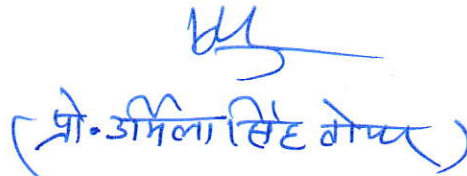 (प्रो. उर्मिला सिंह तोमर)